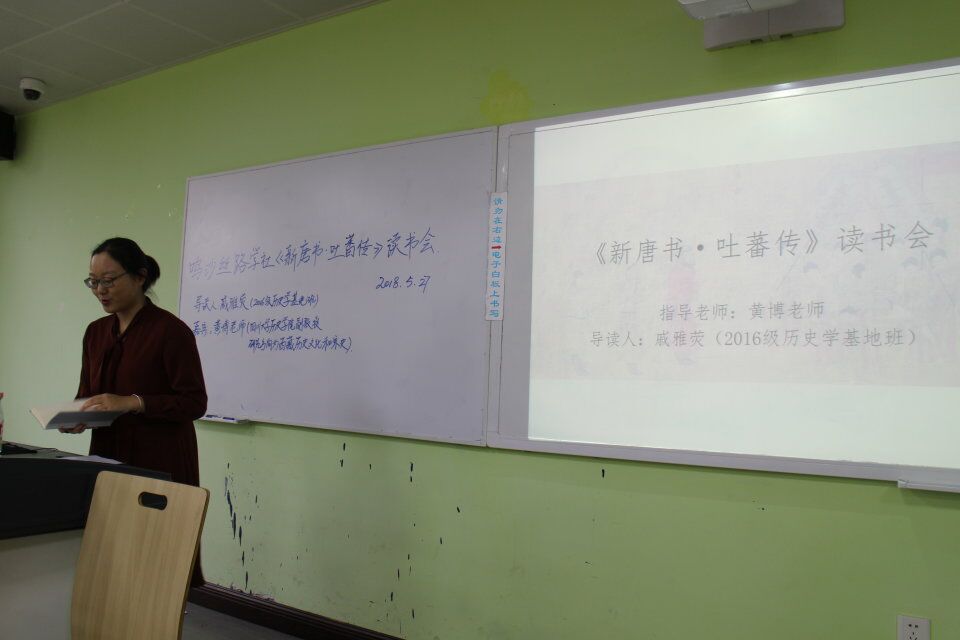 鸣沙丝路学社《新唐书·吐蕃传》读书会
2018.5.27
导读人:戚雅荧(2016级历史学基地班)
嘉宾:黄博老师(四川大学历史学院副教授
研究方向为西藏历史文化和宋史)
请勿在右边电子白板上书写
《新唐书·吐蕃传》读书会
指导老师:黄博老师
导读人:戚雅荧(2016级历史学基地班)